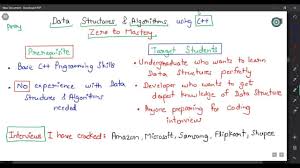 Data Structures & Algorithms using C++
Zero to Mastery
Prerequisite
• Basic C++ Programming Skills
• No experience with Data
Structures & Algorithms
needed
Target Students
• Undergraduate who wants to learn
Data Structures perfectly
• Developer who wants to get
deeper knowledge of Data
Structures
• Anyone preparing for Coding
interview
Interviews I have cracked: Amazon, Microsoft, Samsung, Flipkart, Shopee